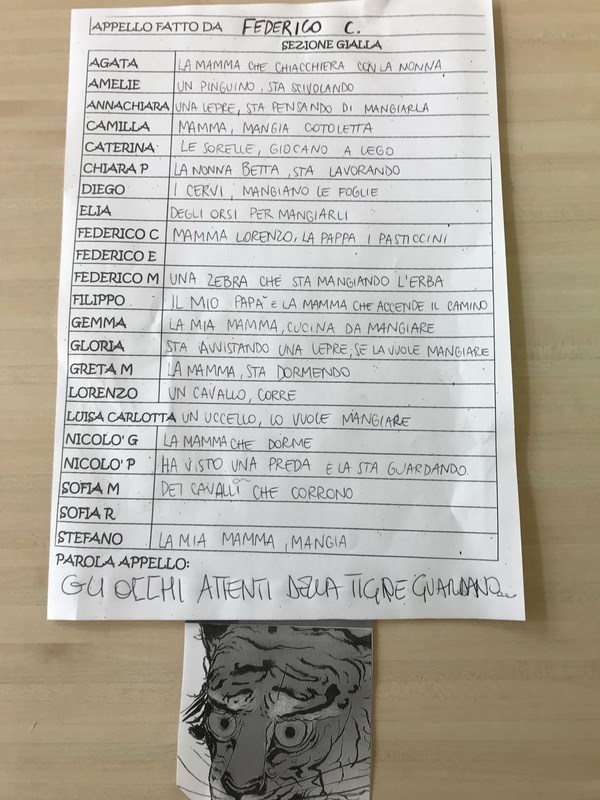 APPELLO FATTO DA FEDERICO C.
SEZIONE GIALLA
AGATA LA MAMMA CHE CHIACCHIERA CON LA NONNA
AMELIE UN PINGUINO, STA SCIVOLANDO
ANNACHIARA UNA LEPRE, STA PENSANDO DI MANGIARLA
CAMILLA MAMMA, MANGIA COTOLETTA
CATERINA LE SORELLE, GIOCANO A LEGO
CHIARA P LA NONNA BETTA, STA LAVORANDO
DIEGO I CERVI, MANGIANO LE FOGLIE
ELIA DEGLI ORSI PER MANGIARLI
FEDERICO C MAMMA LORENZO, LA PAPPA I PASTICCINI
FEDERICO E
FEDERICO M UNA ZEBRA CHE STA MANGIANDO L'ERBA
FILIPPO IL MIO PAPA' E LA MAMMA CHE ACCENDE IL CAMINO
GEMMA LA MIA MAMMA, CUCINA DA MANGIARE
GLORIA STA AVVISTANDO UNA LEPRE, SE LA VUOLE MANGIARE
GRETA M LA MAMMA, STA DORMENDO
LORENZO UN CAVALLO, CORRE
LUISA CARLOTTA UN UCCELLO, LO VUOLE MANGIARE
NICOLO' G LA MAMMA CHE DORME
NICOLO' P HA VISTO UNA PREDA E LA STA GUARDANDO.
SOFIA M DEI CAVALLI CHE CORRONO
SOFIA R
STEFANO LA MIA MAMMA, MANGIA
PAROLA APPELLO:
GLI OCCHI ATTENTI DELLA TIGRE GUARDANO...